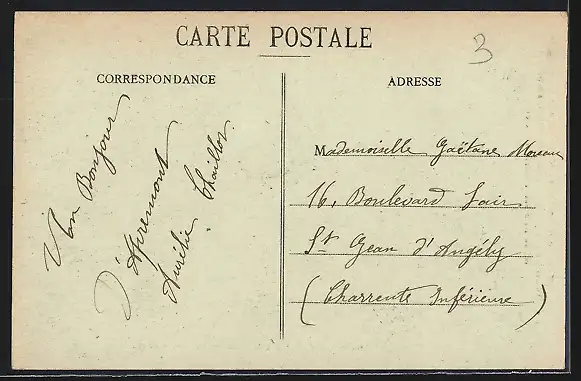 CARTE POSTALE
3
CORRESPONDANCE
Un Bonjour
D'Apremont
Aurélie Chaillou
ADRESSE
Mademoiselle Gaëtane Moreau
16, Boulevard Lair
St Jean d'Angély
(Charrente Inférieure)